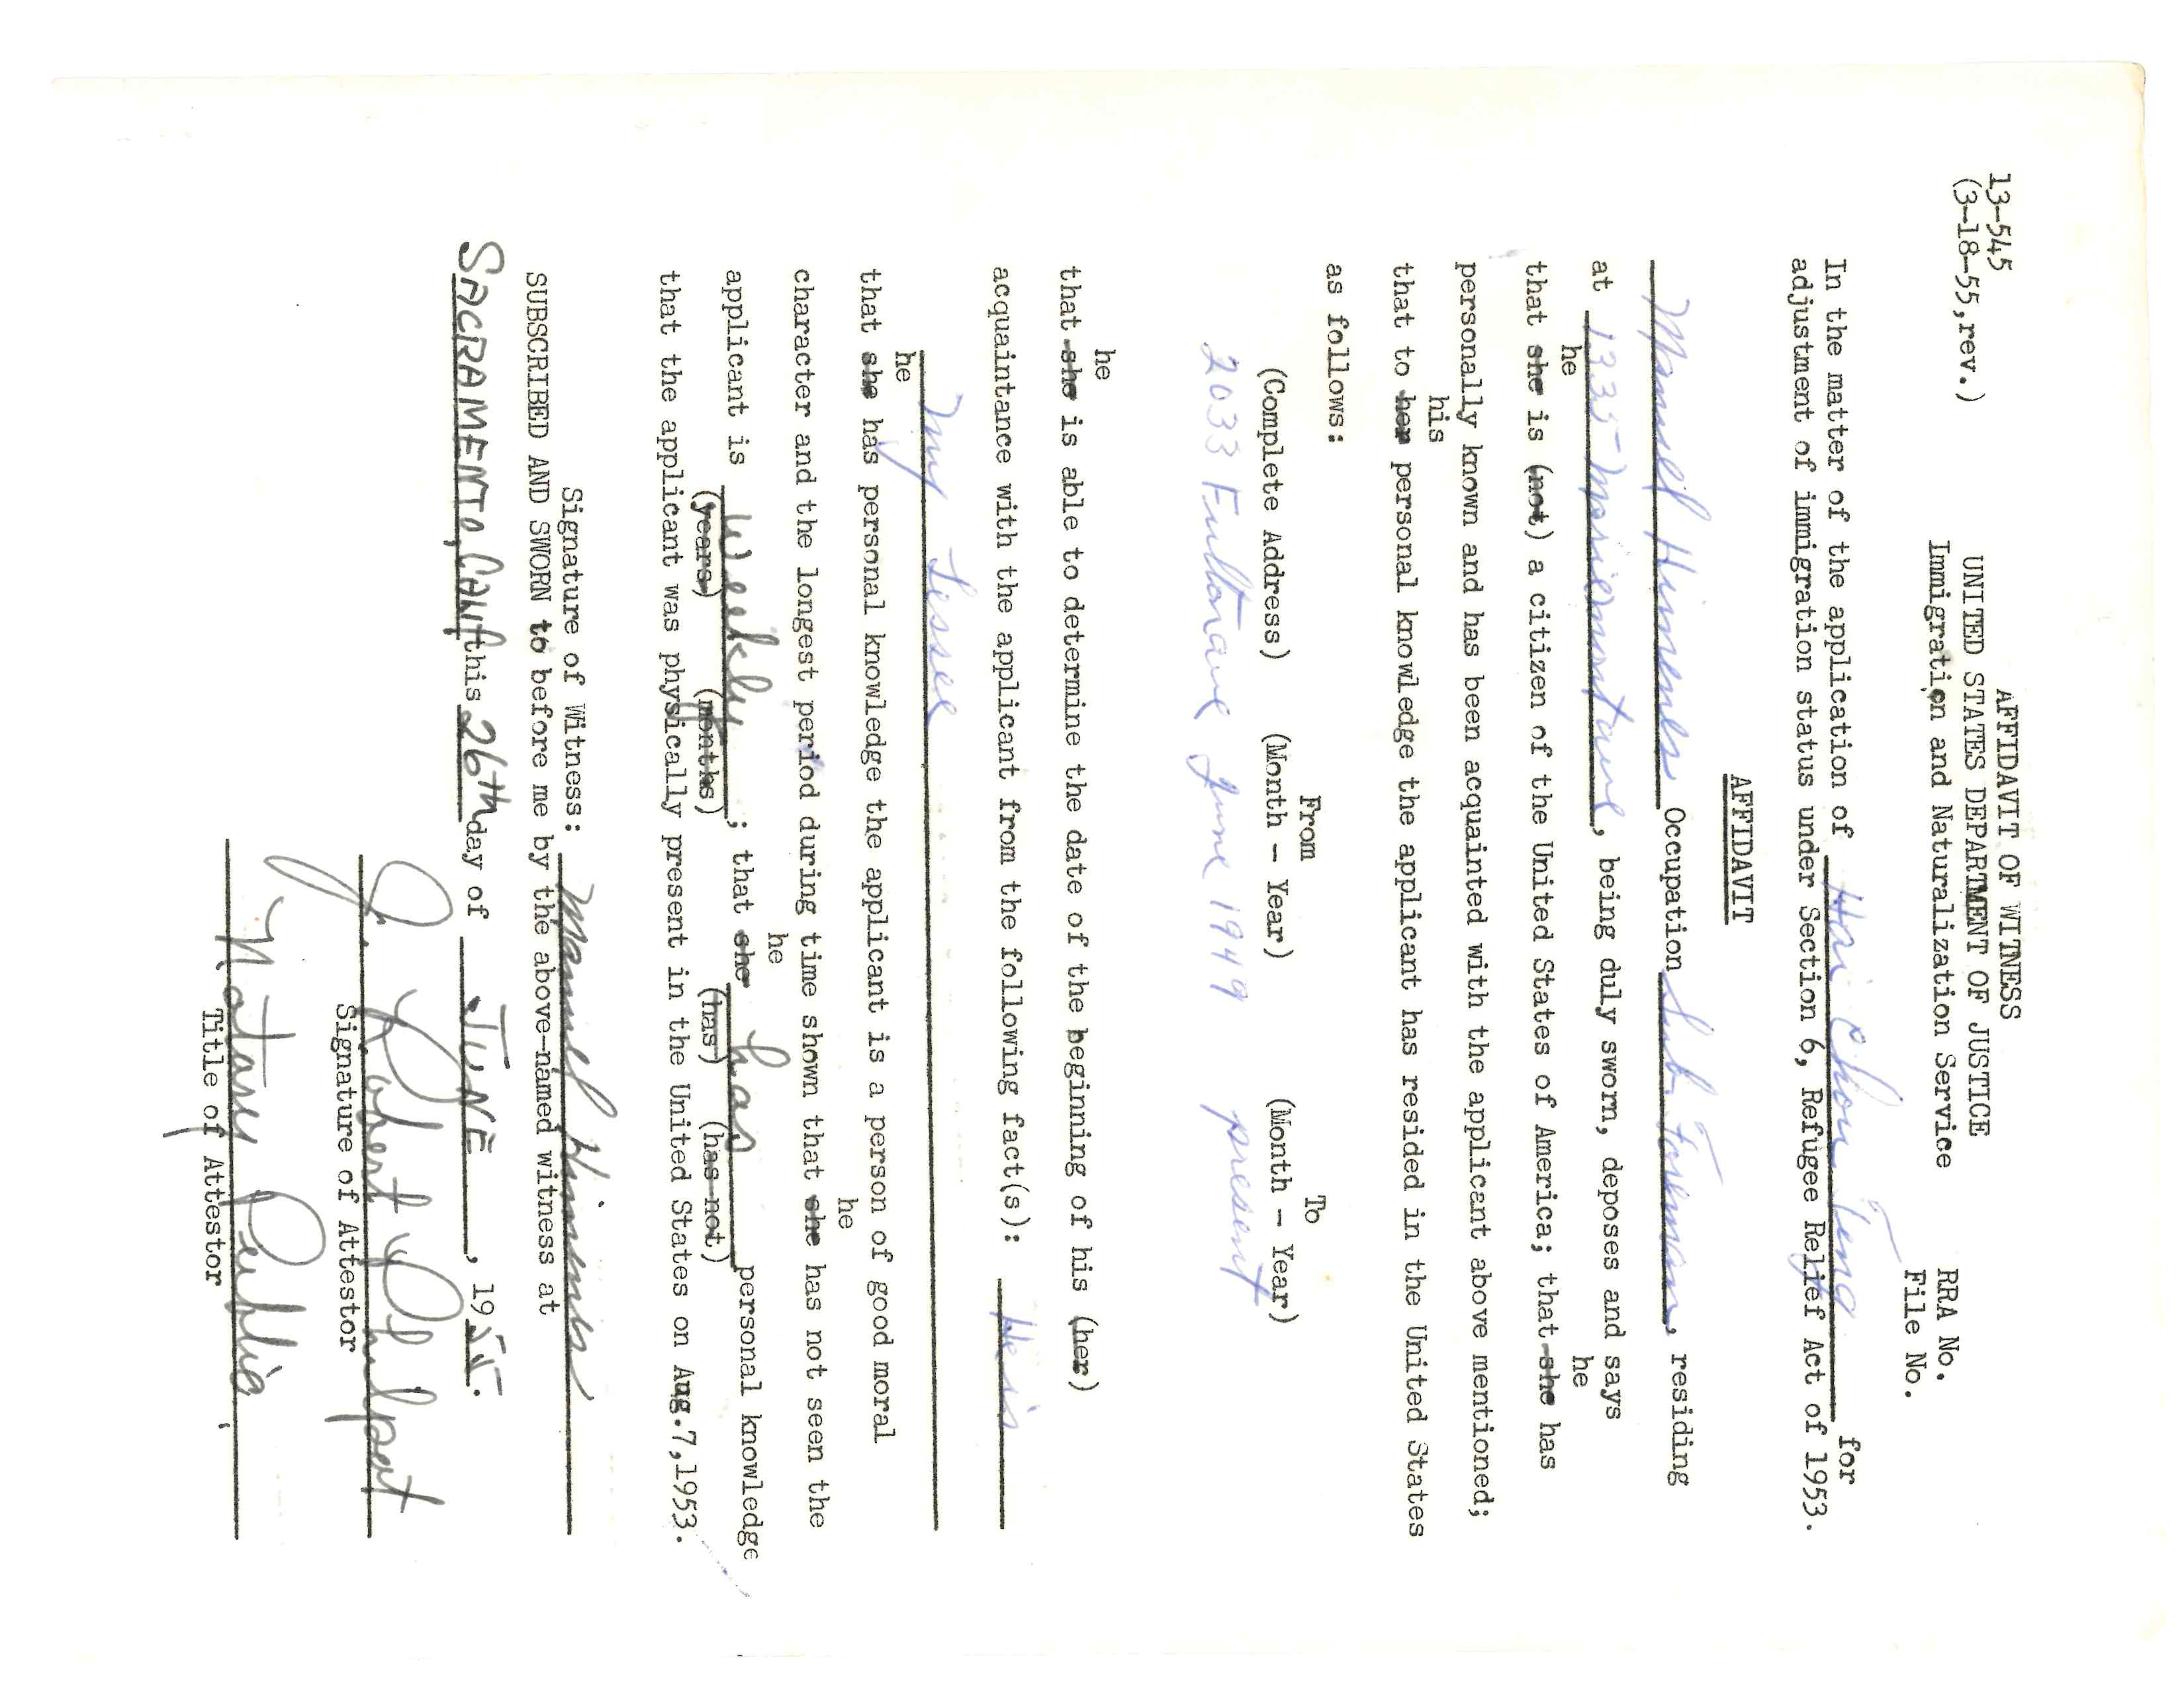 13-545
(3-18-55,rev.)
AFFIDAVIT OF WITNESS
UNITED STATES DEPARTMENT OF JUSTICE
Immigration and Naturalization Service
RRA No.
File No.
In the matter of the application of Hai Chou Teng for
adjustment of immigration status under Section 6, Refugee Relief Act of 1953.
AFFIDAVIT
Manuel Himenes Occupation Sub. Foreman, residing
at 1335 Mariemont ave, being duly sworn, deposes and says
he he
that she is (not) a citizen of the United States of America; that she has
personally known and has been acquainted with the applicant above mentioned;
his
that to her personal knowledge the applicant has resided in the United States
as follows:
From To
(Complete Address) (Month - Year) (Month - Year)
2033 Fulton ave June 1949 present
he
that she is able to determine the date of the beginning of his (her)
acquaintance with the applicant from the following fact(s): He is
my Lessee
he
that she has personal knowledge the applicant is a person of good moral
he
character and the longest period during time shown that she has not seen the
he
applicant is weekly ; that she has personal knowledge
(years) (months) (has) (has not)
that the applicant was physically present in the United States on Aug.7,1953.
Signature of Witness: Manuel Himenes
SUBSCRIBED AND SWORN to before me by the above-named witness at
SACRAMENTO, CALIF this 26th day of JUNE, 1955.
J. Robert Philpot
Signature of Attestor
Notary Public
Title of Attestor